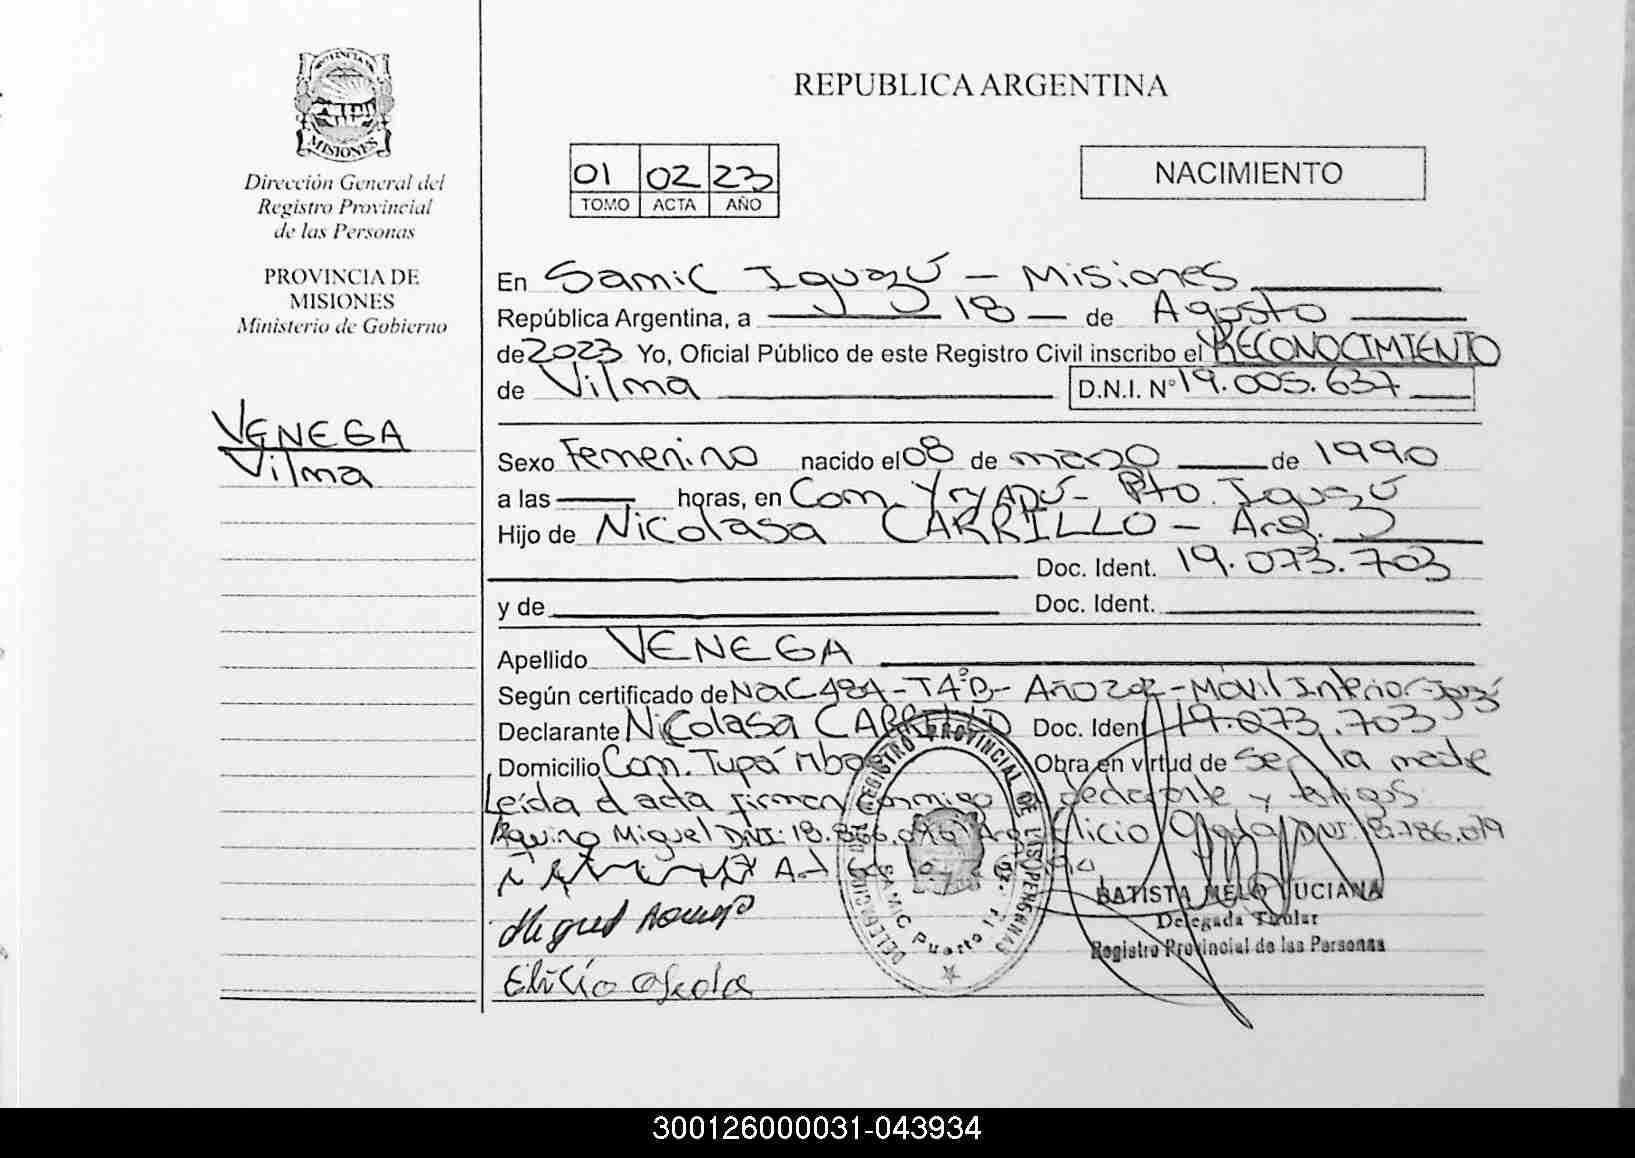 PROVINCIA DE
MISIONES
Dirección General del
Registro Provincial
de las Personas
PROVINCIA DE
MISIONES
Ministerio de Gobierno
VENEGA
Vilma
REPUBLICA ARGENTINA
01 02 23
TOMO ACTA AÑO
NACIMIENTO
En Samic Iguazú - Misiones
República Argentina, a 18 de Agosto
de 2023 Yo, Oficial Público de este Registro Civil inscribo el RECONOCIMIENTO
de Vilma D.N.I. Nº 19.005.637
Sexo Femenino nacido el 08 de marzo de 1990
a las horas, en Com. Yryapú - Pto. Iguazú
Hijo de Nicolasa CARRILLO - Arg.
Doc. Ident. 19.073.703
y de Doc. Ident.
Apellido VENEGA
Según certificado de Nac 484 - T4º - Año - Móvil Interior -
Declarante Nicolasa CARRILLO Doc. Ident 19.073.703
Domicilio Com. Tupá Obra en virtud de Ser la madre
Leída el acta firman conmigo declarante y testigos
Aquino Miguel DNI: 18. Arg. DNI:
BATISTA MELO LUCIANA
Delegada Titular
Registro Provincial de las Personas
Miguel Aquino
DELEGACION DEL REGISTRO PROVINCIAL DE LAS PERSONAS
SAMIC Puerto
300126000031-043934